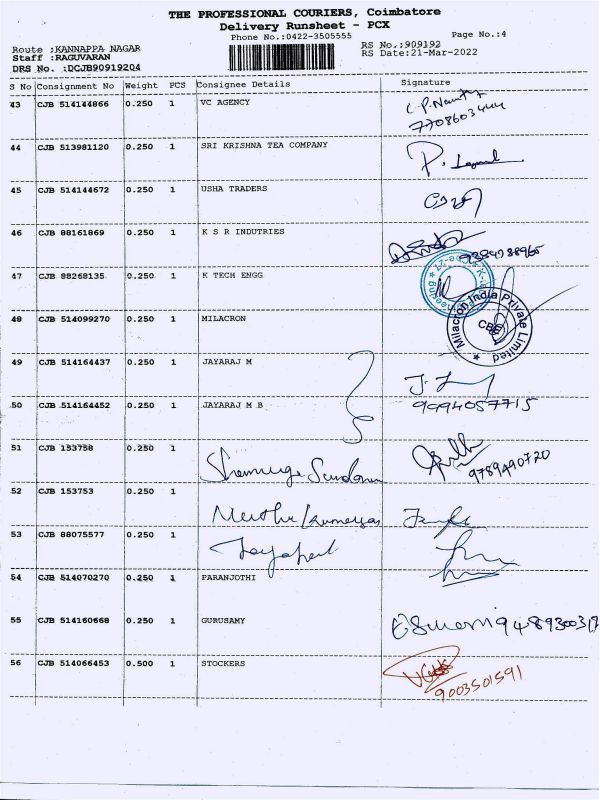 THE PROFESSIONAL COURIERS, Coimbatore
Delivery Runsheet - PCX
Phone No.:0422-3505555
Page No.:4
Route :KANNAPPA NAGAR
Staff :RAGUVARAN
DRS No. :DCJB90919204
RS No.:909192
RS Date:21-Mar-2022
S No Consignment No Weight PCS Consignee Details Signature
43 CJB 514144866 0.250 1 VC AGENCY
7708603444
44 CJB 513981120 0.250 1 SRI KRISHNA TEA COMPANY
45 CJB 514144672 0.250 1 USHA TRADERS
46 CJB 88161869 0.250 1 K S R INDUTRIES
47 CJB 88268135 0.250 1 K TECH ENGG
48 CJB 514099270 0.250 1 MILACRON
Milacron India Private Limited
CBE
49 CJB 514164437 0.250 1 JAYARAJ M
50 CJB 514164452 0.250 1 JAYARAJ M B
9094057715
51 CJB 153758 0.250 1
9789490720
52 CJB 153753 0.250 1
53 CJB 88075577 0.250 1
54 CJB 514070270 0.250 1 PARANJOTHI
55 CJB 514160668 0.250 1 GURUSAMY
56 CJB 514066453 0.500 1 STOCKERS
9003501591